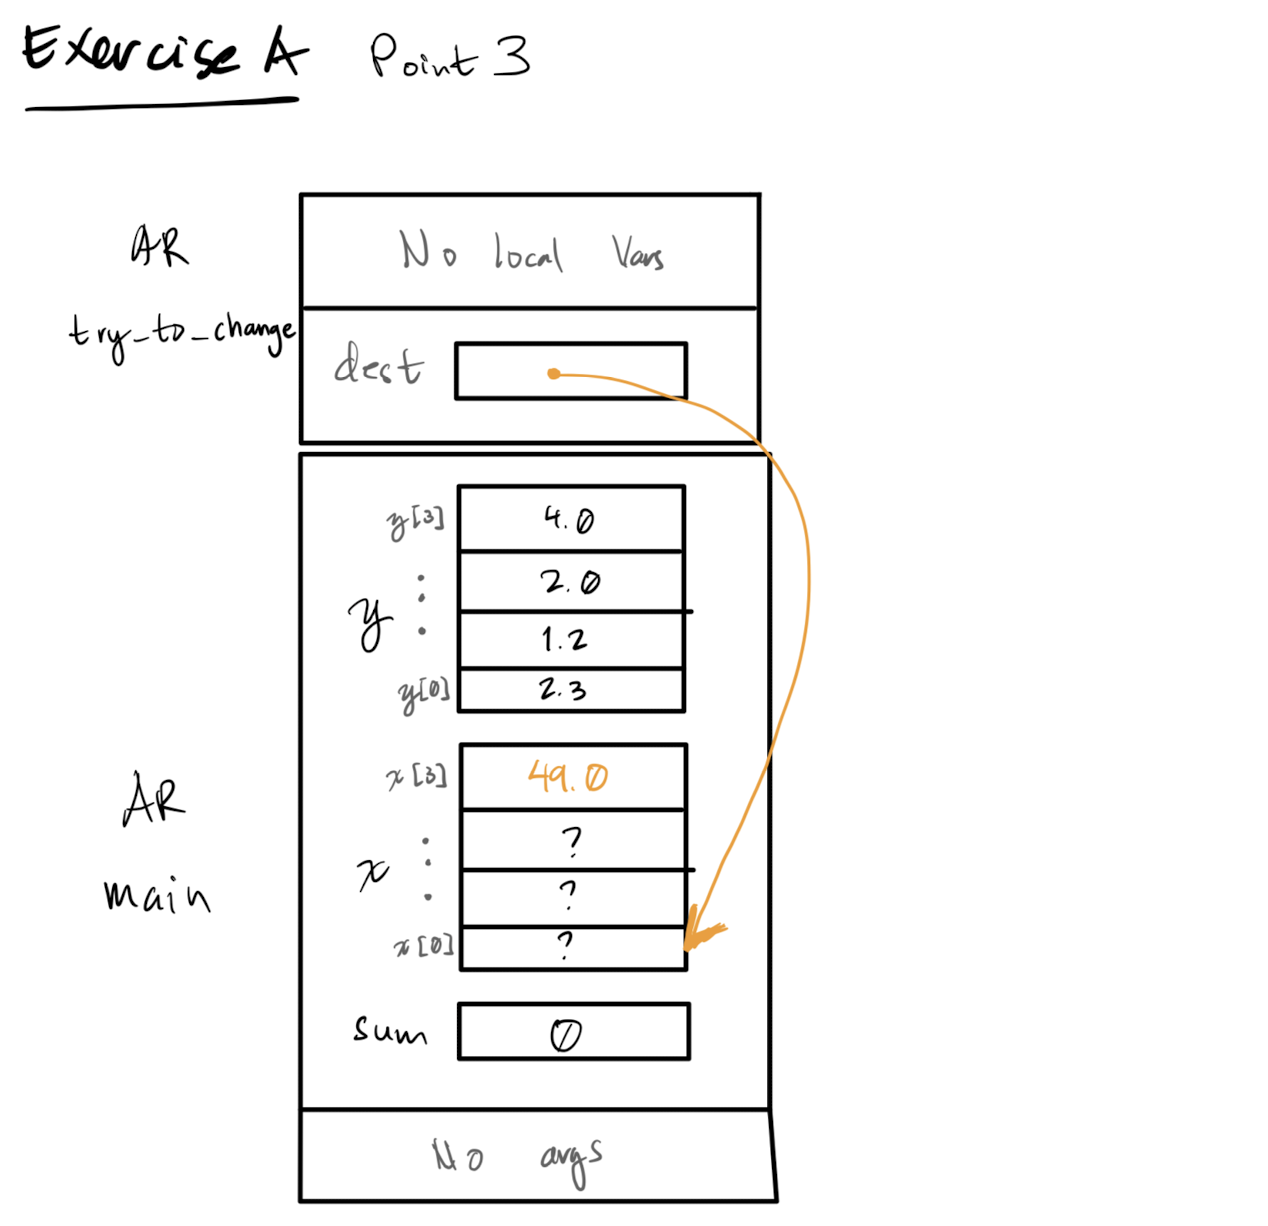 Exercise A Point 3
AR
try_to_change
No local Vars
dest
AR
main
y
y[3] 4.0
2.0
1.2
y[0] 2.3
x
x[3] 49.0
?
?
x[0] ?
sum 0
No args